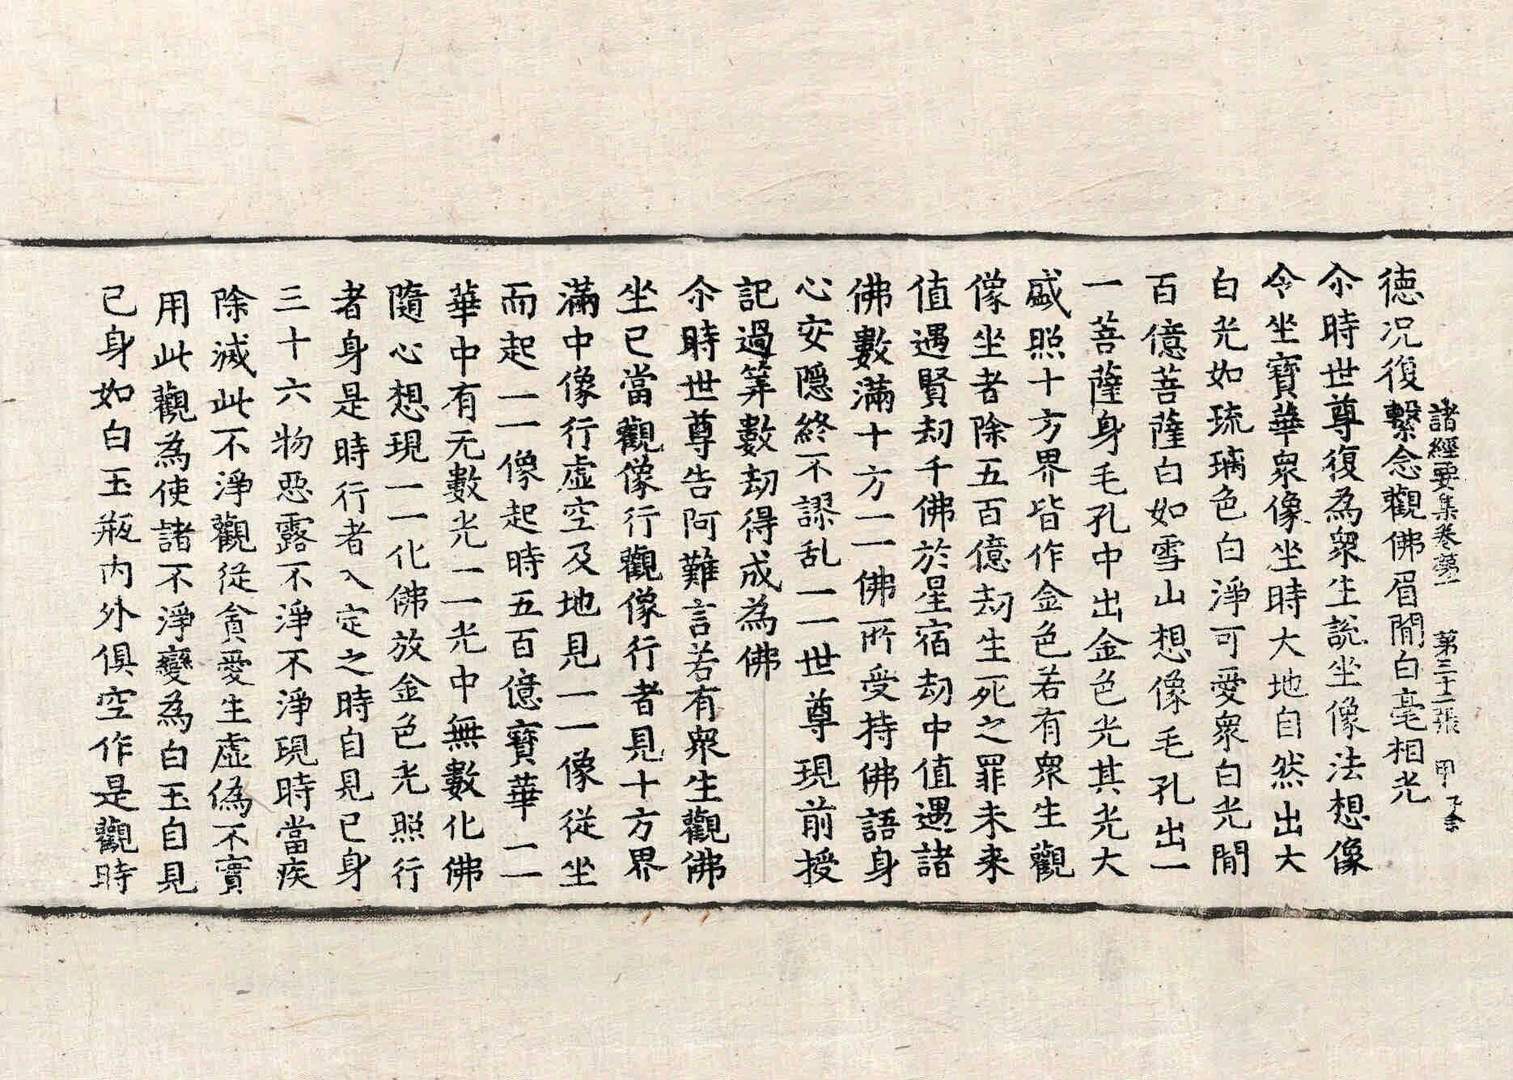 諸經要集卷第一 第三十二張 甲 下余
德况復繫念觀佛眉閒白毫相光
尒時世尊復為衆生說坐像法想像
令坐寶華衆像坐時大地自然出大
白光如琉璃色白淨可愛衆白光閒
百億菩薩白如雪山想像毛孔出一
一菩薩身毛孔中出金色光其光大
盛照十方界皆作金色若有衆生觀
像坐者除五百億劫生死之罪未来
值遇賢劫千佛於星宿劫中值遇諸
佛數滿十方一一佛所受持佛語身
心安隱終不謬乱一一世尊現前授
記過筭數劫得成為佛
尒時世尊告阿難言若有衆生觀佛
坐已當觀像行觀像行者見十方界
滿中像行虛空及地見一一像從坐
而起一一像起時五百億寶華一一
華中有无數光一一光中無數化佛
隨心想現一一化佛放金色光照行
者身是時行者入定之時自見已身
三十六物惡露不淨不淨現時當疾
除滅此不淨觀從貪愛生虛偽不實
用此觀為使諸不淨變為白玉自見
已身如白玉瓶內外俱空作是觀時